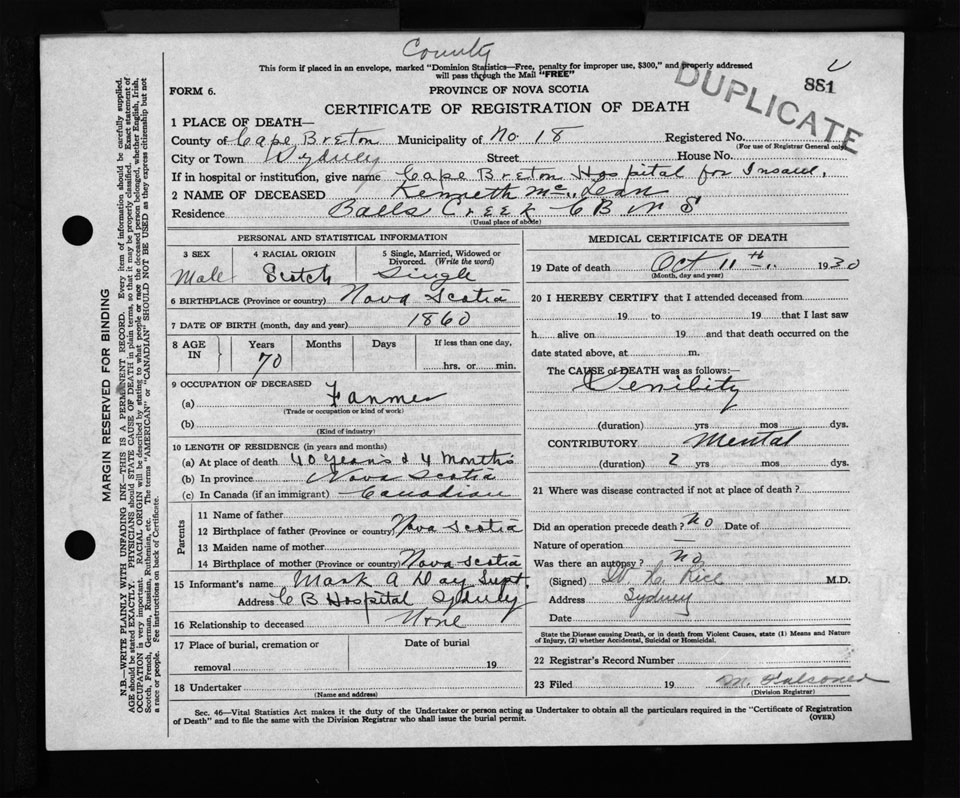 County
This form if placed in an envelope, marked "Dominion Statistics—Free, penalty for improper use, $300," and properly addressed
will pass through the Mail "FREE"
DUPLICATE
881
FORM 6.
PROVINCE OF NOVA SCOTIA
CERTIFICATE OF REGISTRATION OF DEATH
1 PLACE OF DEATH—
County of Cape Breton Municipality of No. 18 Registered No.
(For use of Registrar General only)
City or Town Sydney Street House No.
If in hospital or institution, give name Cape Breton Hospital for Insane,
2 NAME OF DECEASED Kenneth Mc Lean
Residence Balls Creek C B N S
(Usual place of abode)
PERSONAL AND STATISTICAL INFORMATION
3 SEX 4 RACIAL ORIGIN 5 Single, Married, Widowed or Divorced. (Write the word)
Male Scotch Single
6 BIRTHPLACE (Province or country) Nova Scotia
7 DATE OF BIRTH (month, day and year) 1860
8 AGE IN Years Months Days If less than one day,
70 hrs. or min.
9 OCCUPATION OF DECEASED
(a) Farmer
(Trade or occupation or kind of work)
(b)
(Kind of industry)
10 LENGTH OF RESIDENCE (in years and months)
(a) At place of death 40 years & 4 months
(b) In province Nova Scotia
(c) In Canada (if an immigrant) Canadian
Parents
11 Name of father
12 Birthplace of father (Province or country) Nova Scotia
13 Maiden name of mother
14 Birthplace of mother (Province or country) Nova Scotia
15 Informant's name Mark A Day Supt.
Address C B Hospital Sydney
16 Relationship to deceased None
17 Place of burial, cremation or Date of burial
removal 19
18 Undertaker
(Name and address)
MEDICAL CERTIFICATE OF DEATH
19 Date of death Oct 11th, 1930
(Month, day and year)
20 I HEREBY CERTIFY that I attended deceased from
19 to 19 that I last saw
h alive on 19 and that death occurred on the
date stated above, at m.
The CAUSE of DEATH was as follows:—
Senility
(duration) yrs mos dys.
CONTRIBUTORY Mental
(duration) 2 yrs mos dys.
21 Where was disease contracted if not at place of death?
Did an operation precede death? No Date of
Nature of operation —
Was there an autopsy? No
(Signed) Rice M.D.
Address Sydney
Date
State the Disease causing Death, or in death from Violent Causes, state (1) Means and Nature
of Injury, (2) whether Accidental, Suicidal or Homicidal.
22 Registrar's Record Number
23 Filed 19 M.
(Division Registrar)
Sec. 46—Vital Statistics Act makes it the duty of the Undertaker or person acting as Undertaker to obtain all the particulars required in the "Certificate of Registration
of Death" and to file the same with the Division Registrar who shall issue the burial permit. (OVER)
MARGIN RESERVED FOR BINDING
N.B.—WRITE PLAINLY WITH UNFADING INK—THIS IS A PERMANENT RECORD. Every item of information should be carefully supplied.
AGE should be stated EXACTLY. PHYSICIANS should STATE CAUSE OF DEATH in plain terms, so that it may be properly classified. Exact statement of
OCCUPATION is very important. RACIAL ORIGIN will be described by stating to what people or race the deceased person belonged, whether English, Irish,
Scotch, French, German, Russian, Ruthenian, etc. The terms "AMERICAN" or "CANADIAN" SHOULD NOT BE USED as they express citizenship but not
a race or people. See instructions on back of Certificate.